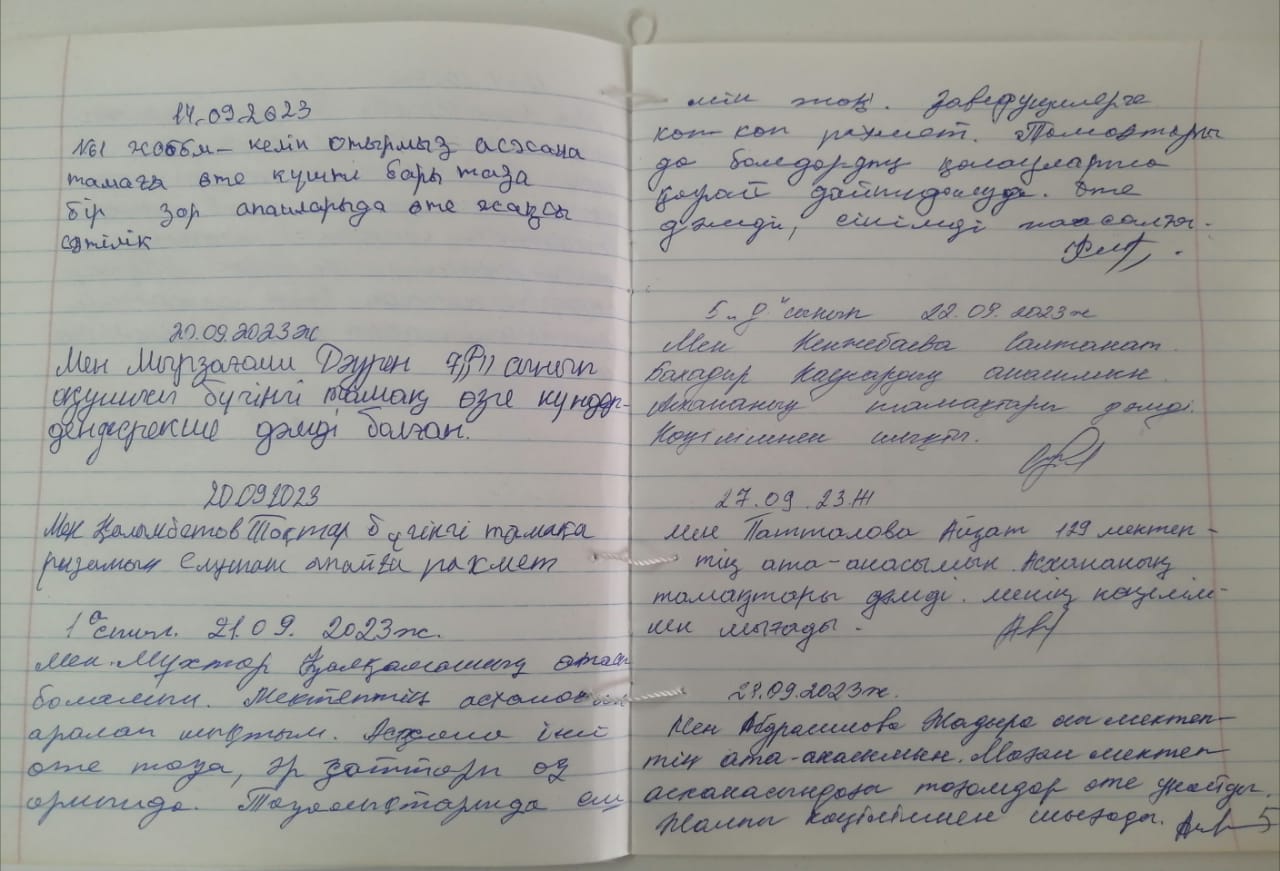 14.09.2023
№1 жоббм – келіп отырмыз асхана
тамаға өте күшті бары таза
бір зор апайларыда өте жақсы
сәтілік
20.09.2023ж
Мен Мырзағали Дәурен 7"Р" сынып
оқушысы бүгінгі тамақ өзге күндер-
ден ерекше дәмді болған.
20.09.2023
Мен Қалымбетов Тоқтар бүгінгі тамақа
ризамын апайға рахмет
1 "а" сынып. 21.09. 2023ж.
Мен Мухтар атасы
боламын. Мектептің асханасын
аралап шықтым. Асхана іші
өте таза, әр заттары өз
орнында. Тазалықтарында ем
мін жоқ. Заведущилерге
көп-көп рахмет. Тамақтары
да балдардың қалауларына
қарай дайындалуда. Өте
дәмді, сіңімді жасалған.
5 "д" сынып 22.09.2023ж
Мен Кенжебаева Салтанат.
Баходир анасымын.
Асхананың тамақтары дәмді.
Көңілімнен шықты.
27.09.23Ж
Мен Патталова Айзат 129 мектеп-
тің ата-анасымын. Асхананың
тамақтары дәмді. менің көңілім-
нен шығады.
29.09.2023ж.
Мен Абдрашова Жадыра осы мектеп-
тің ата-анасымын. Маған мектеп
асханасындағы тағамдар өте ұнайды.
Жалпы көңілімнен шығады.
5